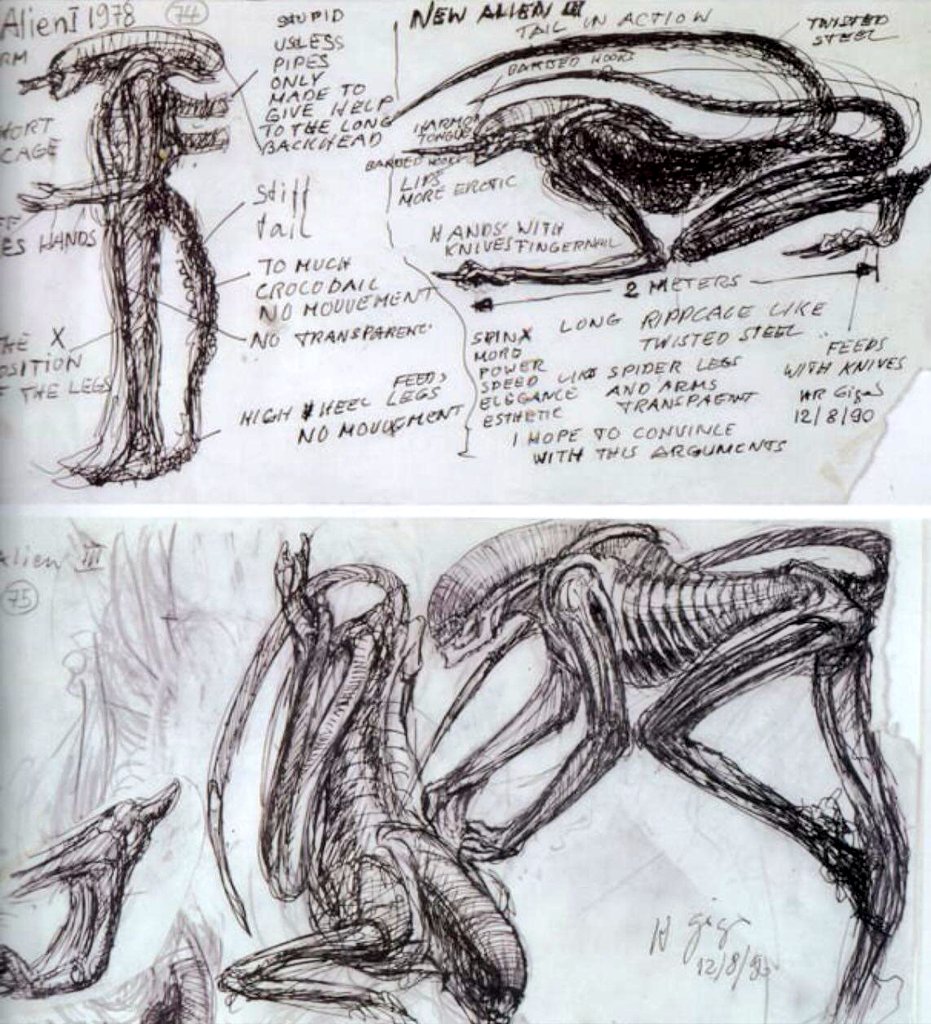 Alien I 1978
74
RM
HORT
CAGE
ES HANDS
THE X
OSITION
F THE LEGS
STUPID
USLESS
PIPES
ONLY
MADE TO
GIVE HELP
TO THE LONG
BACKHEAD
Stiff
tail
TO MUCH
CROCODAIL
NO MOUVEMENT
NO TRANSPARENT
FEEDS
HIGH HEEL LEGS
NO MOUVEMENT
NEW ALIEN III
TAIL IN ACTION
TWISTED
STEEL
BARBED HOOKS
HARMO
TONGUE
BARBED HOOKS
LIPS
MORE EROTIC
HANDS WITH
KNIVES FINGERNAIL
2 METERS
SPINX
MORE
POWER
SPEED
ELEGANCE
ESTHETIC
LONG RIPPCAGE LIKE
TWISTED STEEL
LIKE SPIDER LEGS
AND ARMS
TRANSPAENT
I HOPE TO CONVINCE
WITH THIS ARGUMENTS
FEEDS
WITH KNIVES
HR Giger
12/8/90
Alien III
75
H Giger
12/8/90